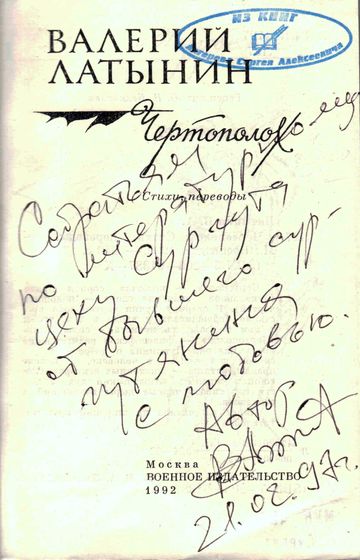 ИЗ КНИГ
Сергея Алексеевича
ВАЛЕРИЙ
ЛАТЫНИН
Чертополох
Стихи, переводы
Собратьям
по литературному
цеху Сургута
от бывшего сур-
гутянина
с любовью.
Автор
21.02.97г.
Москва
ВОЕННОЕ ИЗДАТЕЛЬСТВО
1992